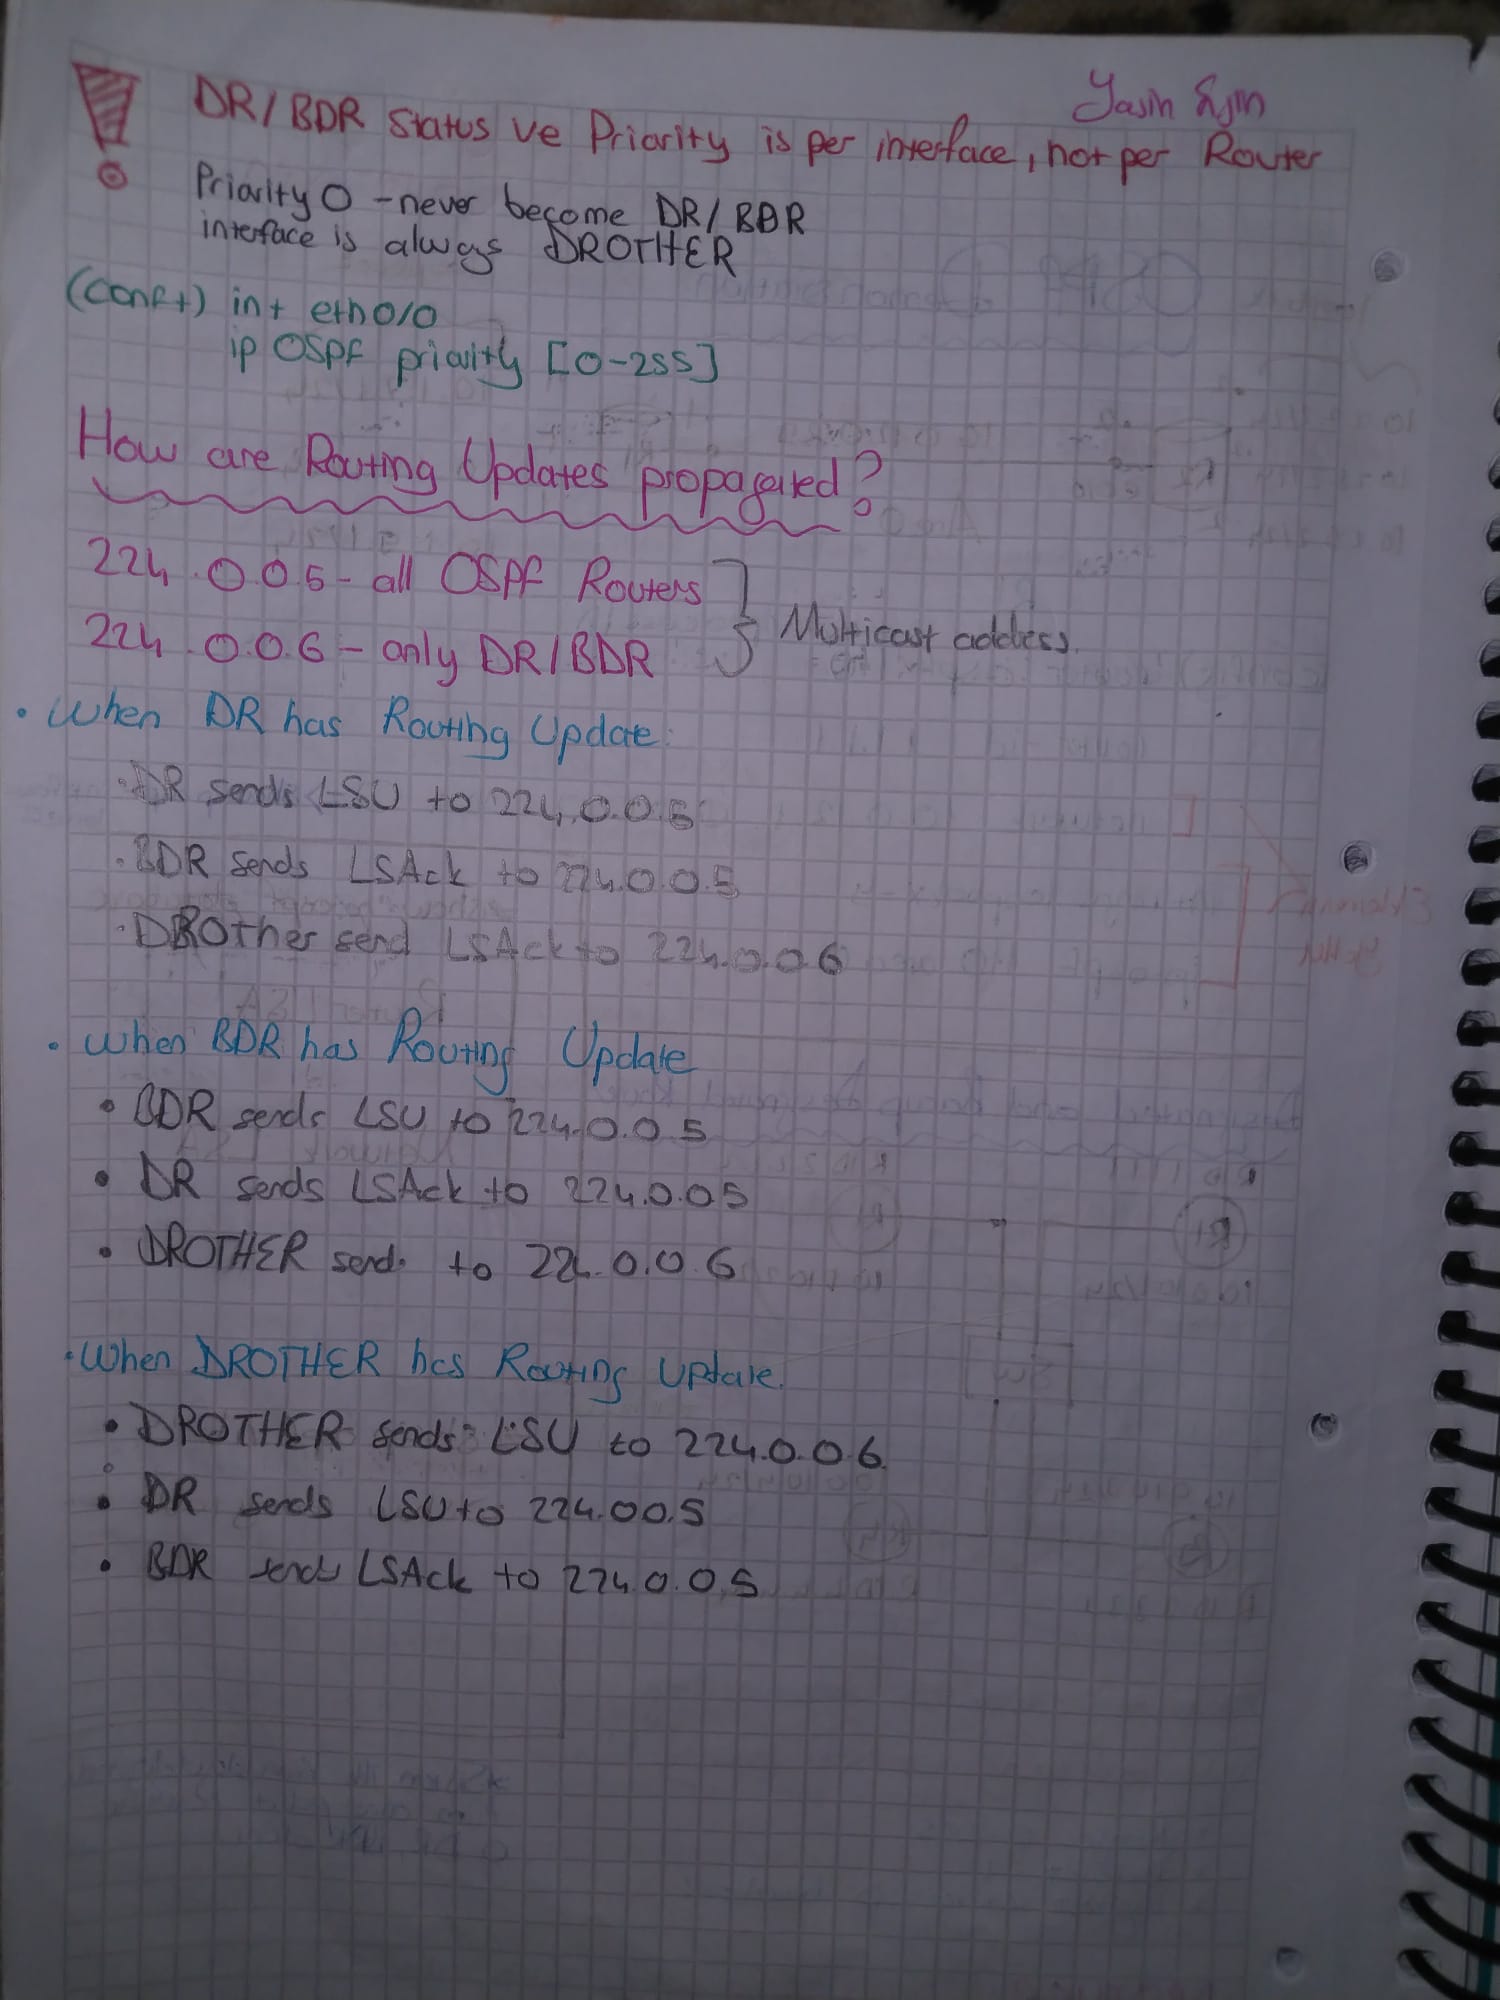 Yasin
DR/BDR Status ve Priority is per interface, not per Router
Priority 0 - never become DR/BDR
interface is always DROTHER
(conft) int eth0/0
ip OSPF priority [0-255]
How are Routing Updates propagated?
224.0.0.5 - all OSPF Routers
Multicast address.
224.0.0.6 - only DR/BDR
• When DR has Routing Update:
• DR sends LSU to 224.0.0.5
• BDR sends LSAck to 224.0.0.5
• DROther send LSAck to 224.0.0.6
• When BDR has Routing Update
• BDR sends LSU to 224.0.0.5
• DR sends LSAck to 224.0.0.5
• DROTHER sends to 224.0.0.6
• When DROTHER has Routing Update.
• DROTHER sends LSU to 224.0.0.6
• DR sends LSU to 224.0.0.5
• BDR sends LSAck to 224.0.0.5